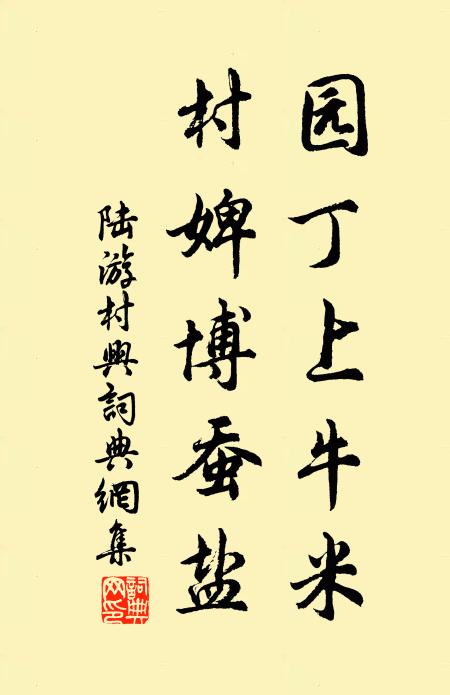 园丁上牛米
村婢博蚕盐
陆游村興詞典網集
詞典网印